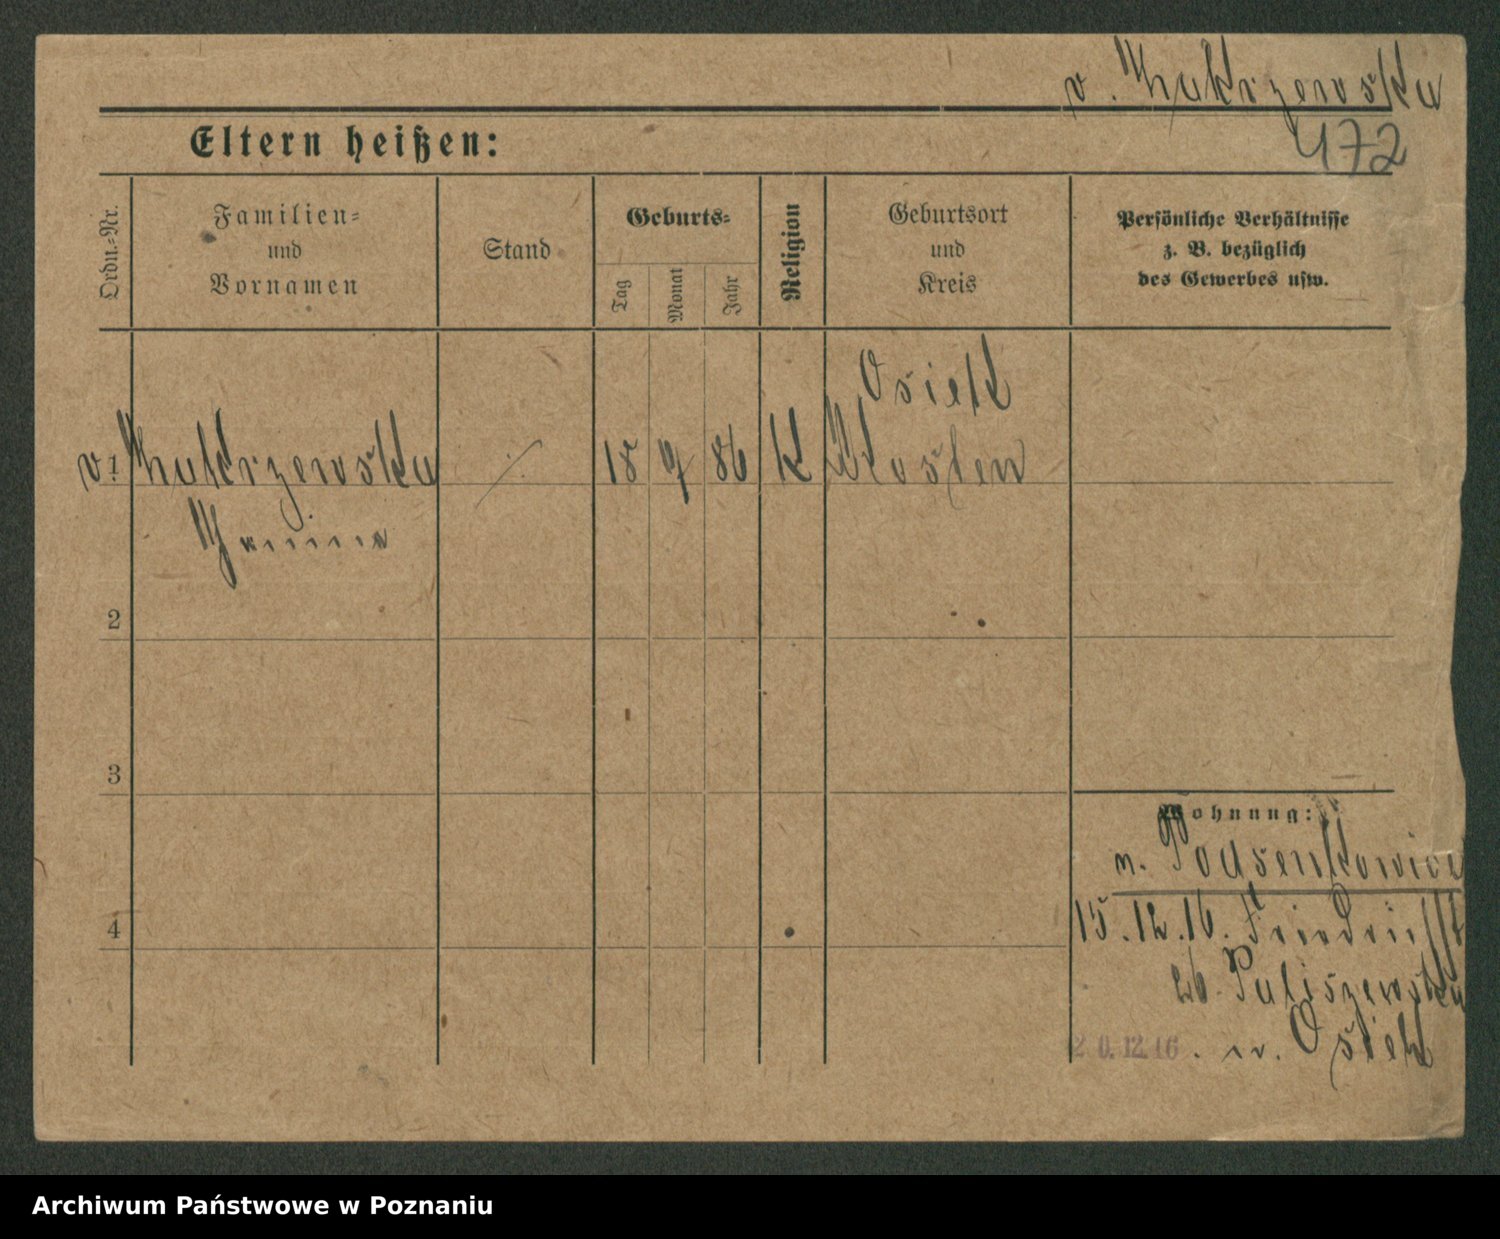 v. Zakrzewska
472
Eltern heißen:
Ordn.-Nr.
Familien-
und
Vornamen
Stand
Geburts-
Tag
Monat
Jahr
Religion
Geburtsort
und
Kreis
Persönliche Verhältnisse
z. B. bezüglich
des Gewerbes usw.
v. 1 Zakrzewska
Janina
18 9 86 K
Osiek
Kosten
2
3
4
Wohnung:
n.
15.12.16.
26.
20.12.16. n. Osiek
Archiwum Państwowe w Poznaniu